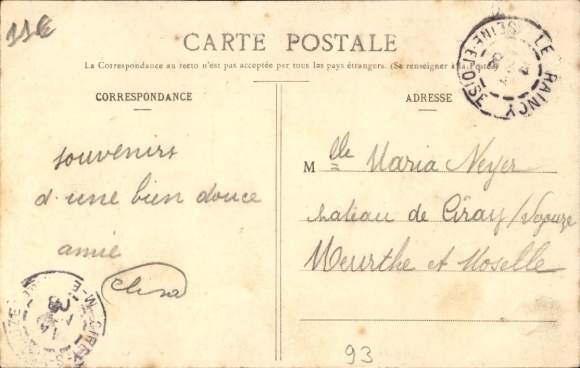 CARTE POSTALE
La Correspondance au recto n'est pas acceptée par tous les pays étrangers. (Se renseigner à la Poste)
CORRESPONDANCE
ADRESSE
souvenirs
d'une bien douce
amie
Elisa
Mlle Maria Neyer
chateau de Ciray/Vezouze
Meurthe et Moselle
LE RAINCY
SEINE-ET-OISE
93